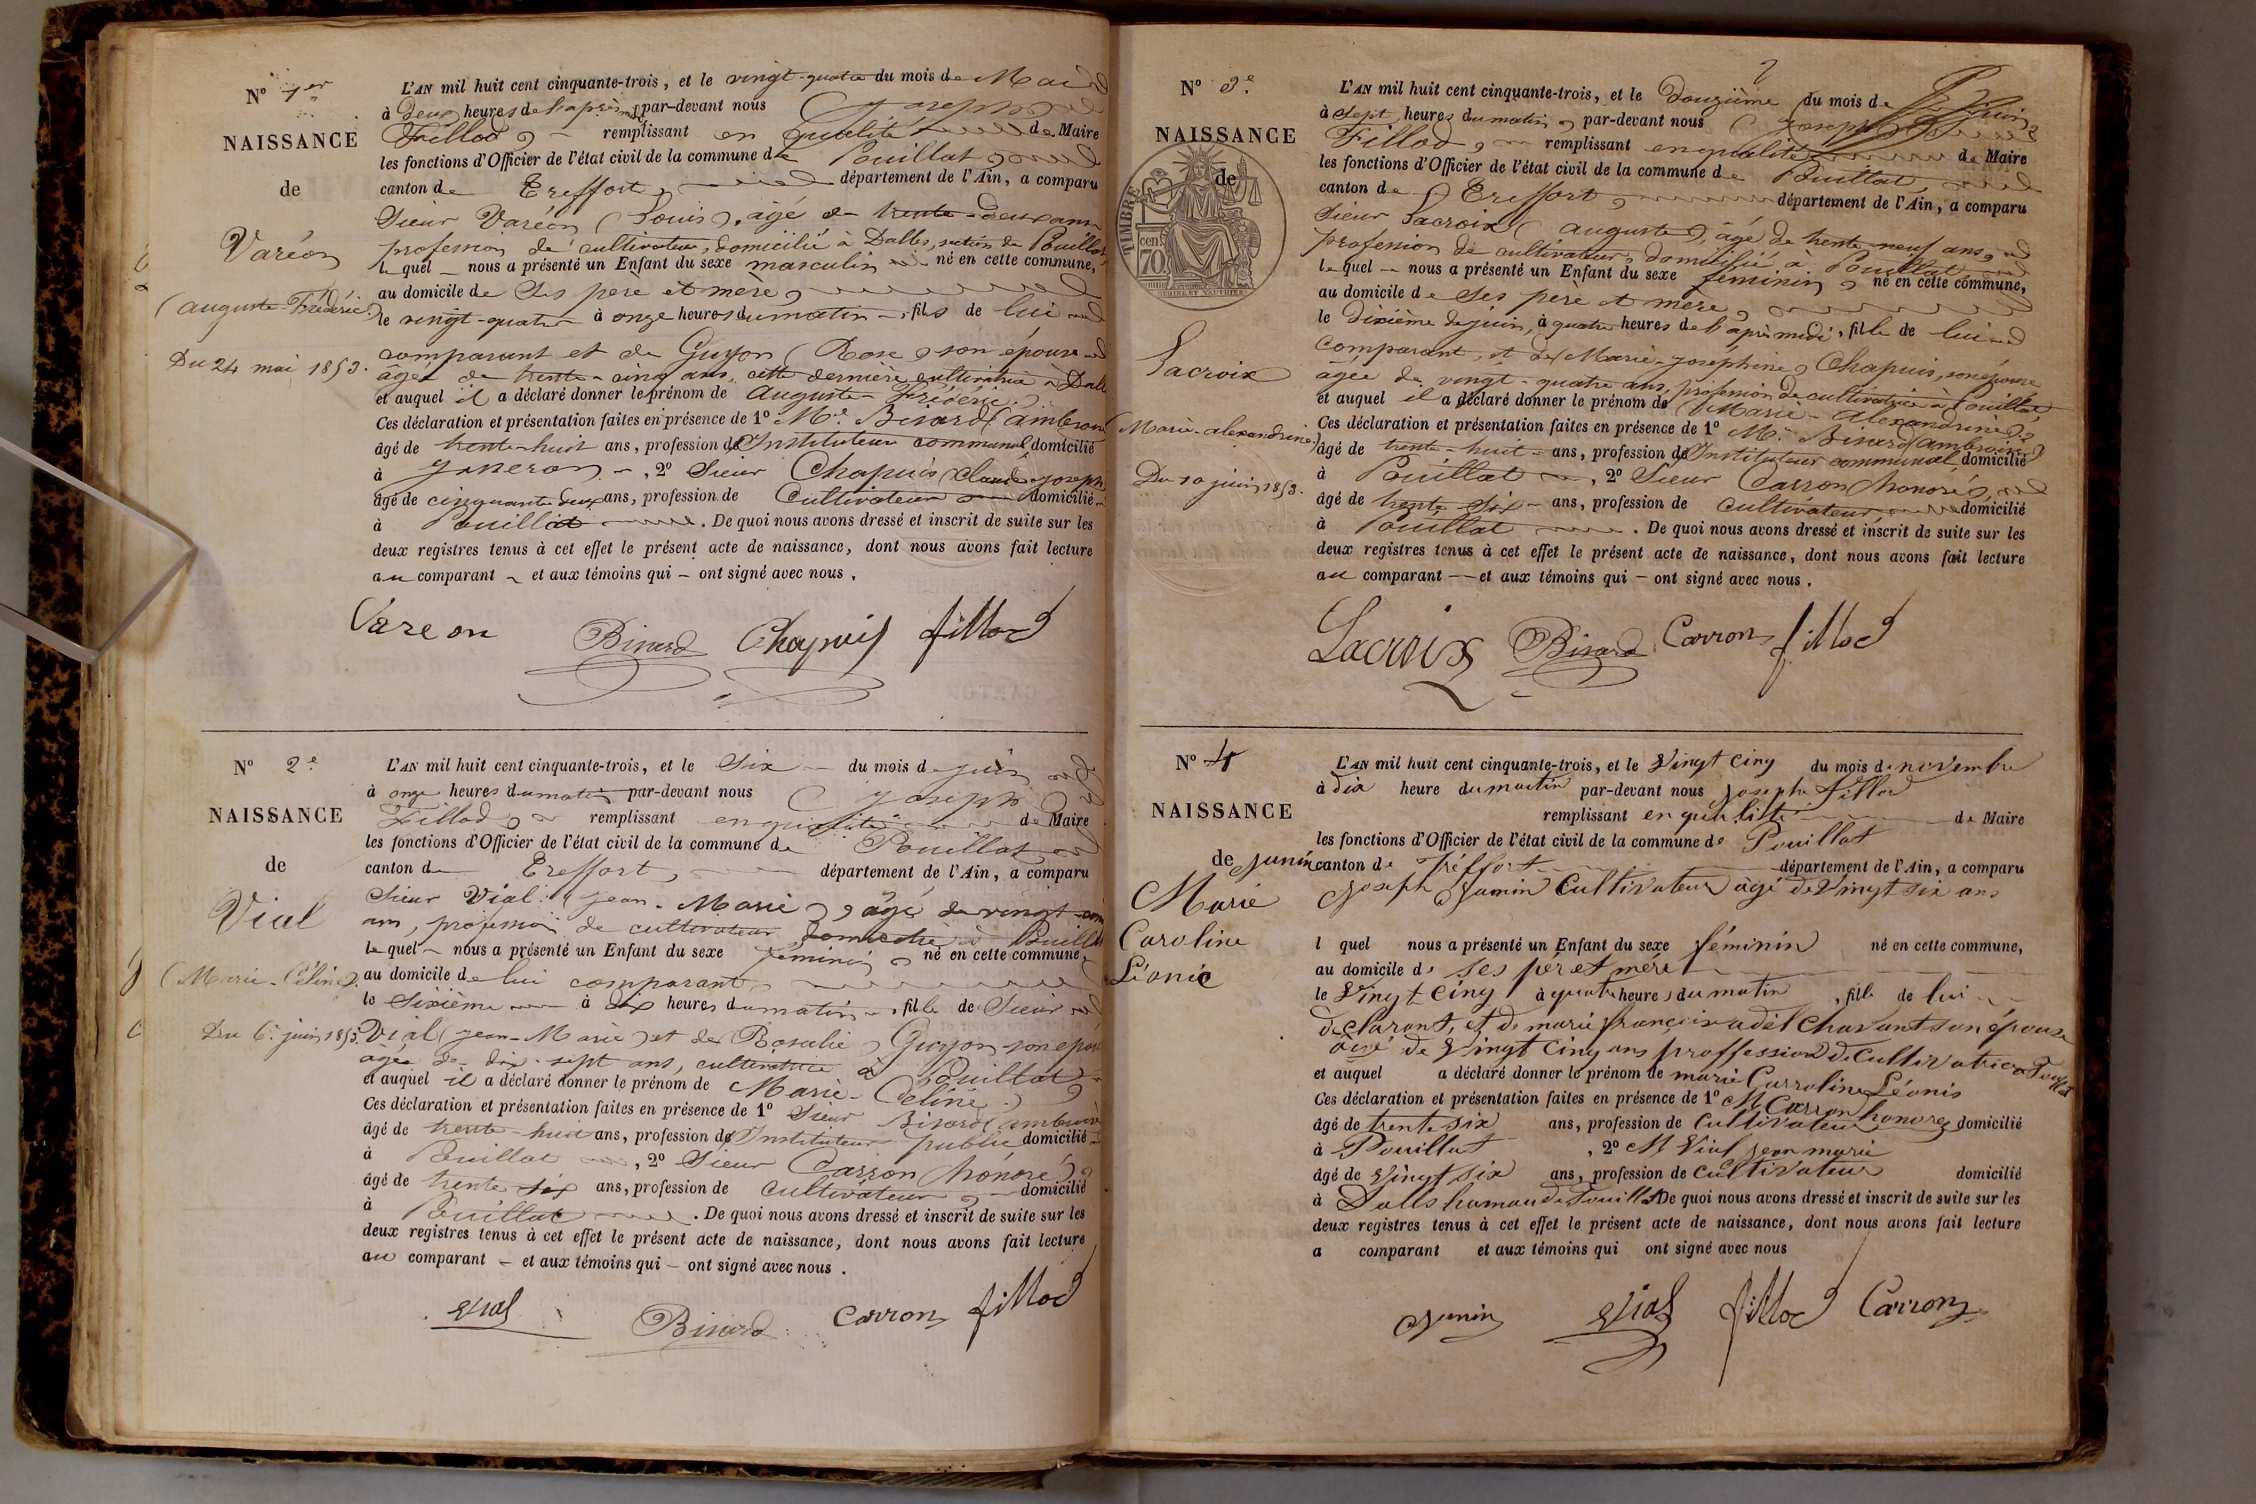 N° 1er
NAISSANCE
de
Varéon
(auguste-Frédéric)
Du 24 mai 1853.
L'AN mil huit cent cinquante-trois, et le vingt-quatre du mois de Mai
à Deux heures de l'après midi par-devant nous (Joseph)
Fillod, remplissant en qualité de Maire
les fonctions d'Officier de l'état civil de la commune de Pouillat
canton de Treffort, département de l'Ain, a comparu
Sieur Varéon (Louis), âgé de trente-deux ans
profession de cultivateur, domicilié à Dalles, section de Pouillat
lequel nous a présenté un Enfant du sexe masculin né en cette commune,
au domicile de Ses père et mère,
le vingt-quatre à onze heures du matin, fils de lui
comparant et de Guyon (Rose) son épouse
âgée de trente-cinq ans, cette dernière cultivatrice à Dalles
et auquel il a déclaré donner le prénom de Auguste-Fréderic.
Ces déclaration et présentation faites en présence de 1° Mr Birard (ambroise
âgé de trente-huit ans, profession d'Instituteur communal domicilié
à , 2° Sieur Chapuis (Claude-Joseph
âgé de cinquante deux ans, profession de Cultivateur domicilié
à Pouillat . De quoi nous avons dressé et inscrit de suite sur les
deux registres tenus à cet effet le présent acte de naissance, dont nous avons fait lecture
au comparant et aux témoins qui ont signé avec nous.
Vareon Birard Chapuis fillod
N° 2e
NAISSANCE
de
Vial
(Marie-Céline).
Du 6 juin 1853.
L'AN mil huit cent cinquante-trois, et le Six du mois de juin
à onze heures du matin par-devant nous (Joseph
Fillod, remplissant en qualité de Maire
les fonctions d'Officier de l'état civil de la commune de Pouillat
canton de Treffort, département de l'Ain, a comparu
Sieur Vial (jean-Marie), âgé de vingt-cinq
ans, profession de cultivateur domicilié à Pouillat
lequel nous a présenté un Enfant du sexe feminin né en cette commune,
au domicile de lui comparant,
le Sixième à dix heures du matin, fille de Sieur
Vial (jean-Marie) et de Rosalie Guyon son épouse
âgée de dix-sept ans, cultivatrice à Pouillat
et auquel il a déclaré donner le prénom de Marie-Céline.
Ces déclaration et présentation faites en présence de 1° Sieur Birard (ambroise
âgé de trente-huit ans, profession d'Instituteur public domicilié
à Pouillat, 2° Sieur Carron (honoré)
âgé de trente six ans, profession de cultivateur domicilié
à Pouillat . De quoi nous avons dressé et inscrit de suite sur les
deux registres tenus à cet effet le présent acte de naissance, dont nous avons fait lecture
au comparant et aux témoins qui ont signé avec nous.
Vial Birard Carron fillod
N° 3e.
NAISSANCE
de
TIMBRE
70
Lacroix
(Marie-alexandrine)
Du 10 juin 1853.
L'AN mil huit cent cinquante-trois, et le Douzième du mois de Juin,
à Sept heures du matin, par-devant nous (Joseph)
Fillod, remplissant en qualité de Maire
les fonctions d'Officier de l'état civil de la commune de Pouillat
canton de Treffort, département de l'Ain, a comparu
Sieur Lacroix (auguste), âgé de trente-neuf ans,
profession de cultivateur, domicilié à Pouillat
lequel nous a présenté un Enfant du sexe feminin, né en cette commune,
au domicile de Ses père et mère,
le dixième de juin, à quatre heures de l'après midi, fille de lui
comparant, et de (Marie-Josephine) Chapuis, son épouse
âgée de vingt-quatre ans, profession de cultivatrice à Pouillat,
et auquel il a déclaré donner le prénom de (Marie-Alexandrine)
Ces déclaration et présentation faites en présence de 1° Mr Birard (ambroise)
âgé de trente-huit ans, profession d'Instituteur communal, domicilié
à Pouillat, 2° Sieur Carron (honoré),
âgé de trente-six ans, profession de cultivateur domicilié
à Pouillat . De quoi nous avons dressé et inscrit de suite sur les
deux registres tenus à cet effet le présent acte de naissance, dont nous avons fait lecture
au comparant et aux témoins qui ont signé avec nous.
Lacroix Birard Carron fillod
N° 4
NAISSANCE
de Junin
Marie
Caroline
Léonie
L'AN mil huit cent cinquante-trois, et le Vingt cinq du mois de novembre
à dix heure du matin par-devant nous Joseph Fillod
remplissant en qualité de Maire
les fonctions d'Officier de l'état civil de la commune de Pouillat
canton de Tréffort département de l'Ain, a comparu
Joseph Junin Cultivateur âgé de Vingt six ans
l quel nous a présenté un Enfant du sexe féminin né en cette commune,
au domicile de ses pér et mére
le Vingt Cinq à quatre heures du matin, fille de lui
déclarant, et de marie françoise adél Chavant son épouse
âgé de Vingt Cinq ans proffession de Cultivatrice a Pouillat
et auquel a déclaré donner le prénom de marie Carroline Léonis
Ces déclaration et présentation faites en présence de 1° M Carron honore
âgé de trente six ans, profession de Cultivateur domicilié
à Pouillat, 2° M Vial jean marie
âgé de Vingt six ans, profession de cultivateur domicilié
à Dalls hamau de Pouillat De quoi nous avons dressé et inscrit de suite sur les
deux registres tenus à cet effet le présent acte de naissance, dont nous avons fait lecture
a comparant et aux témoins qui ont signé avec nous
Junin Vial fillod Carron